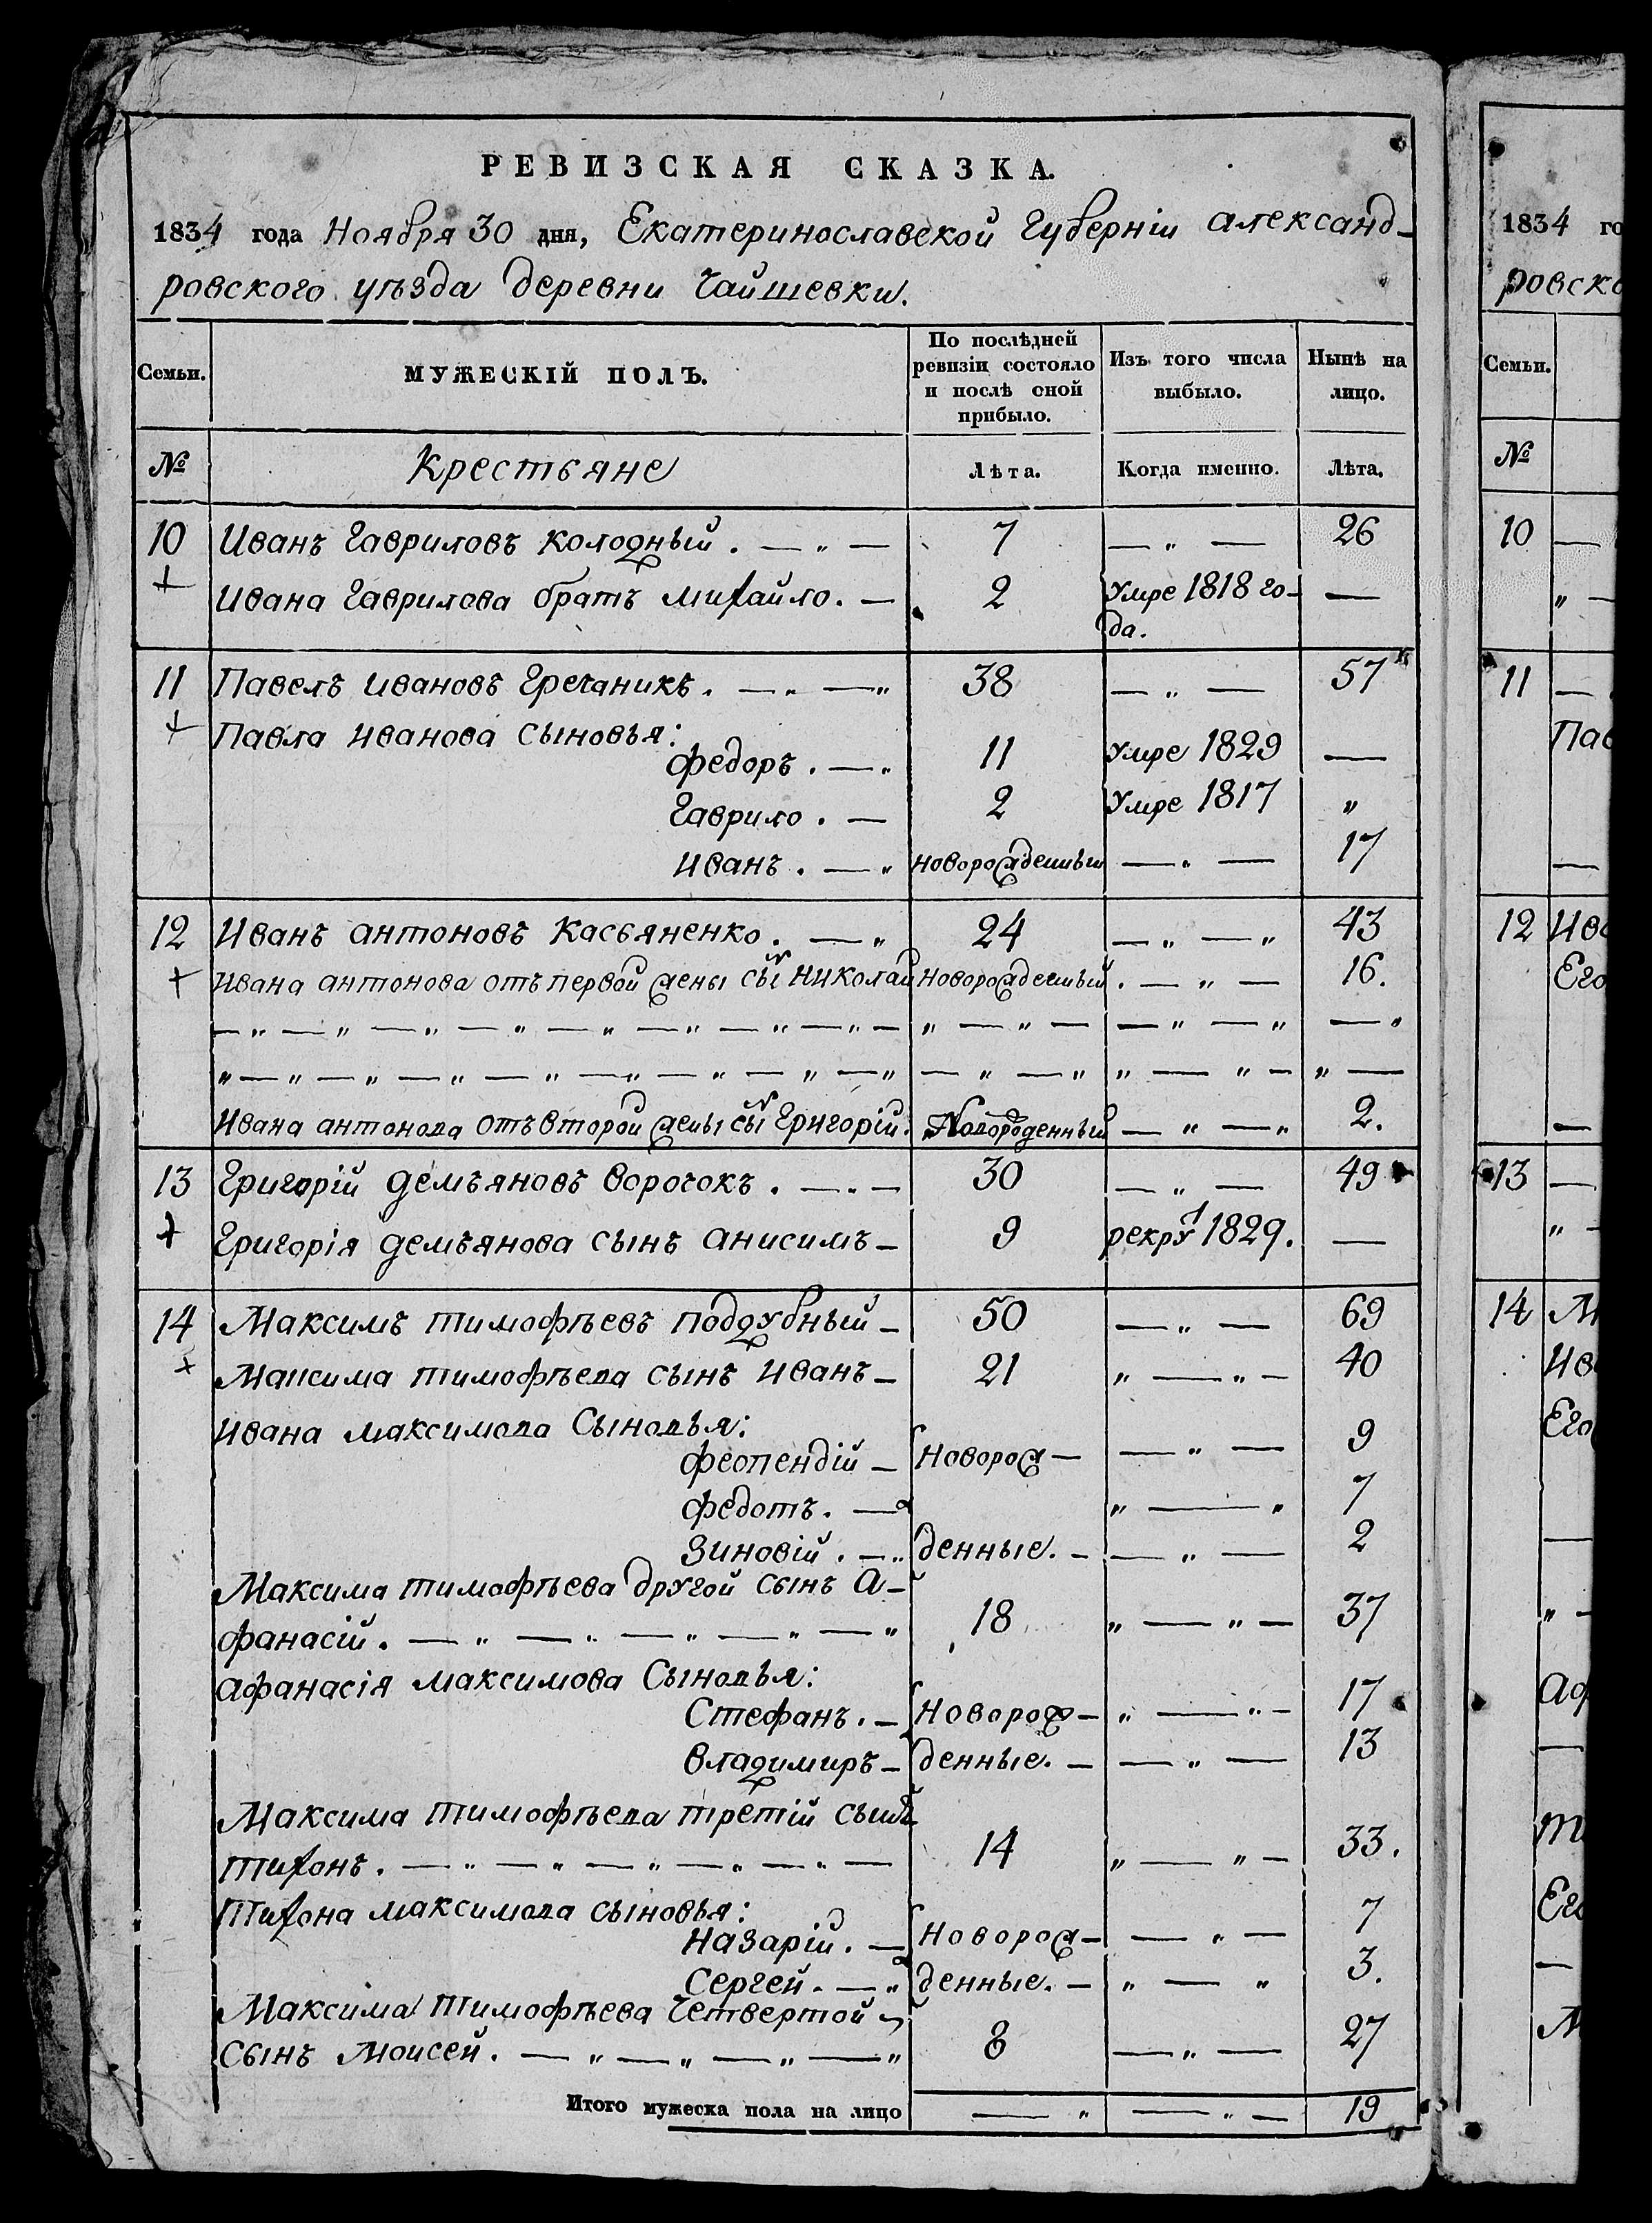 РЕВИЗСКАЯ СКАЗКА.
1834 года Ноября 30 дня, Екатеринославской Губерніи Александ-
ровского уѣзда деревни Чайшевки.
Семьи.
МУЖЕСКІЙ ПОЛЪ.
По послѣдней ревизіи состояло и послѣ оной прибыло.
Изъ того числа выбыло.
Нынѣ на лицо.
№ Крестьяне Лѣта. Когда именно. Лѣта.
10 Иванъ Гавриловъ Колодный. — „ — 7 — „ — 26
Ивана Гаврилова братъ Михайло. — 2 Умре 1818 го- —
да.
11 Павелъ Ивановъ Гречаникъ. — „ — „ 38 — „ — 57
Павла Иванова сыновья:
Федоръ. — „ 11 Умре 1829 —
Гаврило. — 2 Умре 1817 „
Иванъ. — „ новорожденный — „ — 17
12 Иванъ Антоновъ Касьяненко. — „ 24 — „ — „ 43
Ивана Антонова отъ первой жены сынъ Николай новорожденный. — „ — 16.
— „ — „ — „ — „ — „ — „ — „ — „ — „ — „ — — „ — „ — „
„ — „ — „ — „ — „ — „ — „ — „ — „ — „ — „ „ — „ — „ —
Ивана Антонова отъ второй жены сынъ Григорій. Новорожденный — „ — „ 2.
13 Григорій Демьяновъ Ворочокъ. — „ — 30 — „ — 49
Григорія Демьянова сынъ Анисимъ — 9 рекрут 1829. —
14 Максимъ Тимофѣевъ Поддубный — 50 — „ — 69
Максима Тимофѣева сынъ Иванъ — 21 „ — „ — 40
Ивана Максимова Сыновья:
Феопендій — новорож— — „ — 9
Федотъ. — „ — „ 7
Зиновій. — „ денные. — — „ — 2
Максима Тимофѣева другой сынъ А-
фанасій. — „ — „ — „ — „ — „ 18 „ — „ — 37
Афанасія Максимова Сыновья:
Стефанъ. — Новорож— „ — „ — 17
Владимиръ — денные. — — „ — 13
Максима Тимофѣева третій сынъ
Тихонъ. — „ — „ — „ — „ — „ — 14 „ — „ — 33.
Тихона Максимова сыновья:
Назарій. — Новорож— — „ — 7
Сергей. — „ денные. — „ — „ 3.
Максима Тимофѣева Четвертой
Сынъ Моисей. — „ — „ — „ — „ 8 — „ — 27
Итого мужеска пола на лицо — „ — „ — 19
1834 го
ровско
Семьи.
№
10 —
„ —
11 —
Пав
—
12 Ива
Его
—
13 —
„ —
14 М
Ив
Его
—
„ —
Аф
—
Ти
Его
—
М